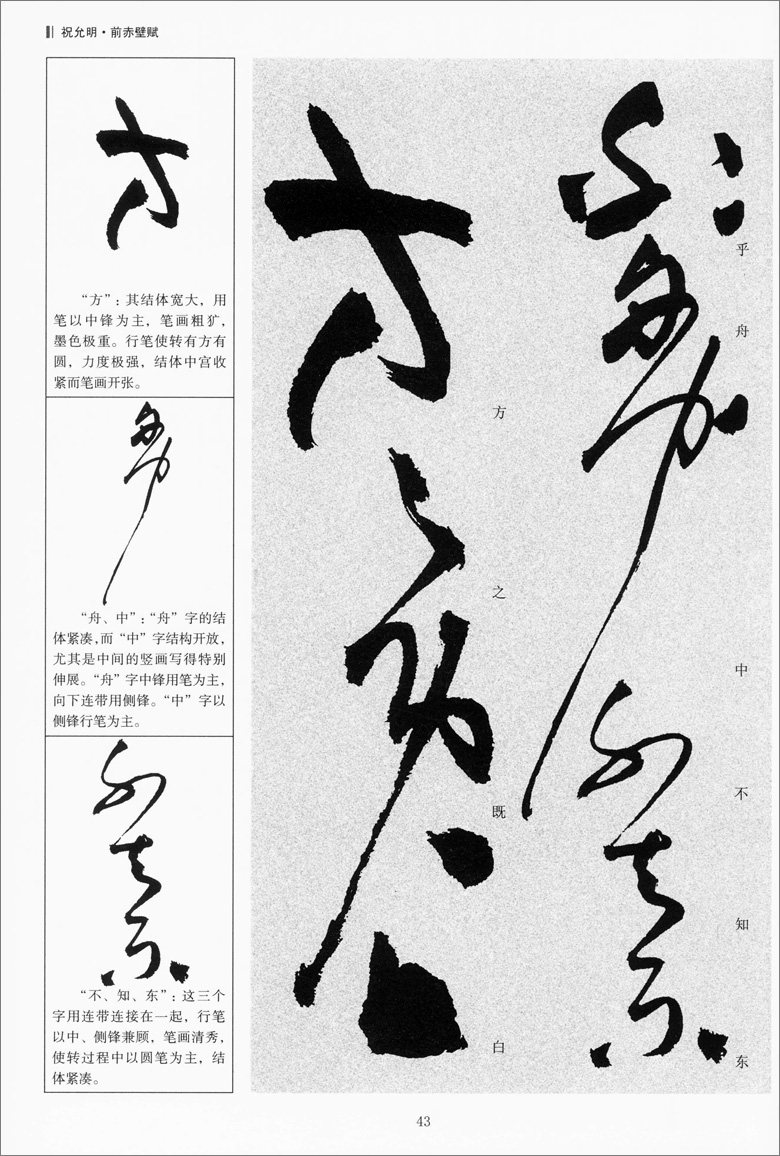 祝允明·前赤壁赋
“方”：其结体宽大，用
笔以中锋为主，笔画粗犷，
墨色极重。行笔使转有方有
圆，力度极强，结体中宫收
紧而笔画开张。
“舟、中”：“舟”字的结
体紧凑，而“中”字结构开放，
尤其是中间的竖画写得特别
伸展。“舟”字中锋用笔为主，
向下连带用侧锋。“中”字以
侧锋行笔为主。
“不、知、东”：这三个
字用连带连接在一起，行笔
以中、侧锋兼顾，笔画清秀，
使转过程中以圆笔为主，结
体紧凑。
乎舟中不知东
方之既白
43